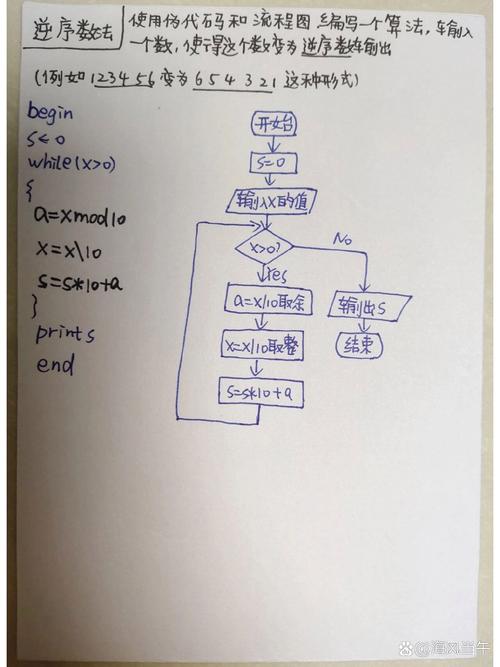 逆序数法
使用伪代码和流程图编写一个算法,输入
一个数,使得这个数变为逆序数在输出
(例如123456变为654321这种形式)
begin
s←0
while(x>0)
{
a=xmod10
x=x\10
s=s*10+a
}
print s
end
开始
s=0
输入x的值
x>0?
No
Yes
a=x/10取余
x=x/10取整
s=s*10+a
输出s
结束
海风当午